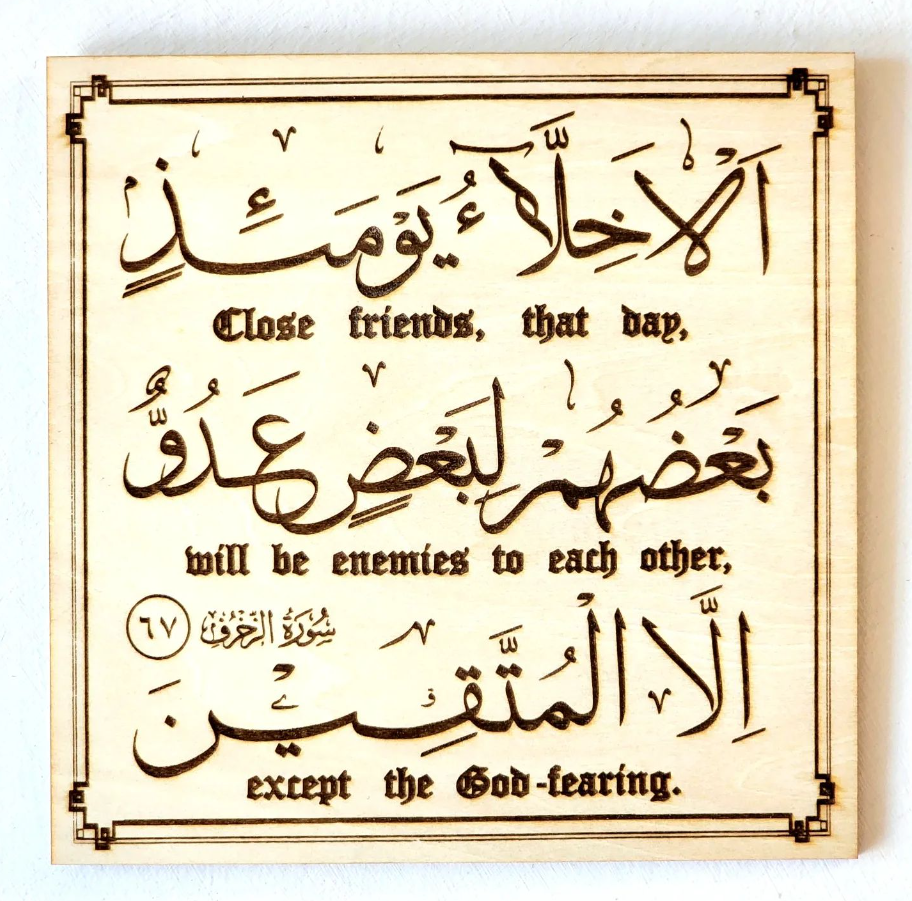 اَلْاَخِلَّآءُ يَوْمَئِذٍ
Close friends, that day,
بَعْضُهُمْ لِبَعْضٍ عَدُوٌّ
will be enemies to each other,
اِلَّا الْمُتَّقِيْنَ
سُورَةُ الزُّخْرُفِ ٦٧
except the God-fearing.